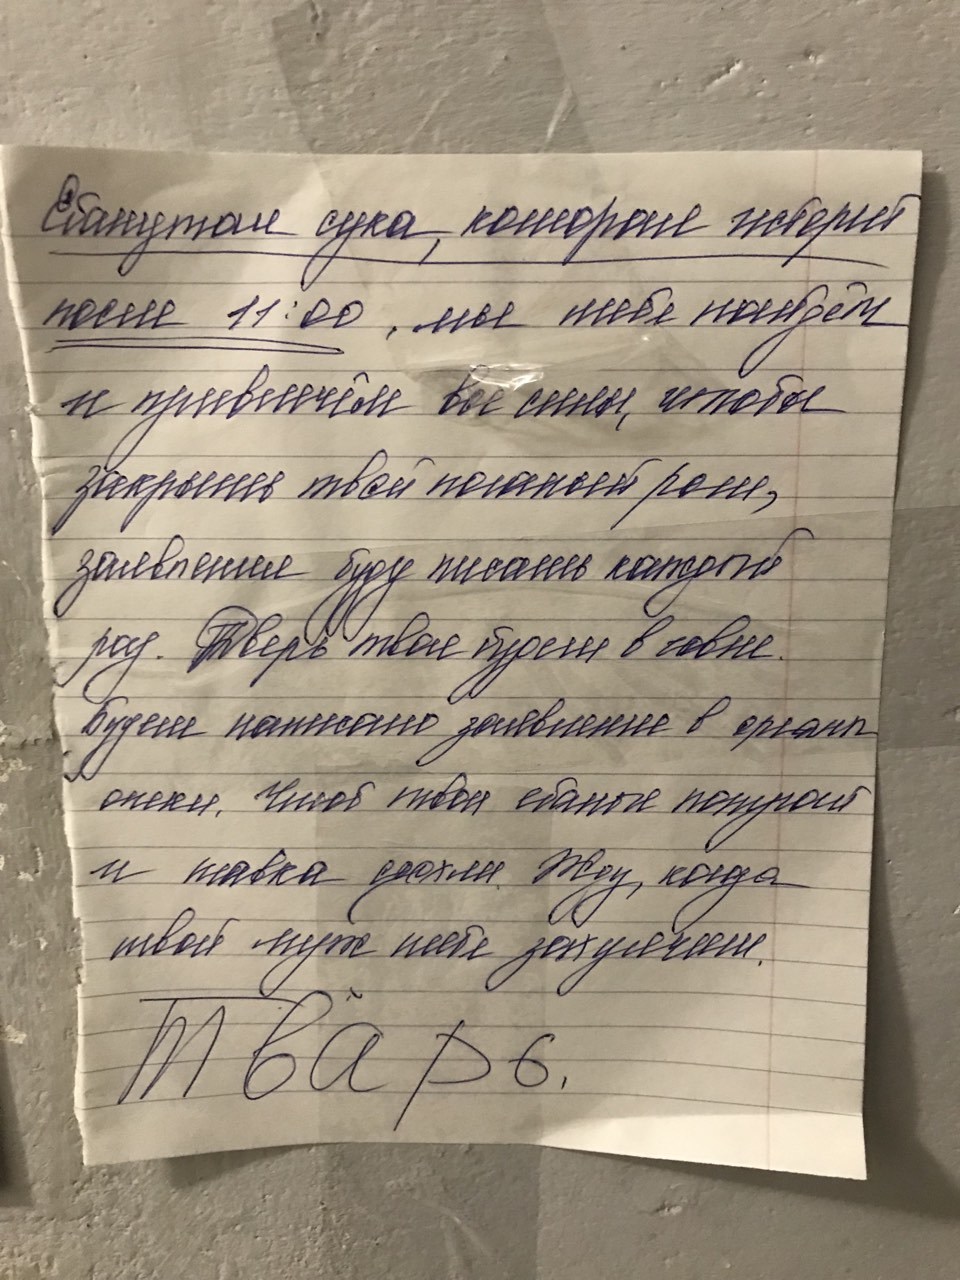 Ебанутая сука, которая истерит
после 11:00, мы тебя найдём
и привлечём все силы, чтобы
закрыть твой поганый рот,
заявления буду писать каждый
раз. Дверь твоя будет в говне.
Будет написано заявление в органы
опеки. Чтоб твои ебаные
и шавка сдохли. Жду, когда
твой муж тебя
Тварь.